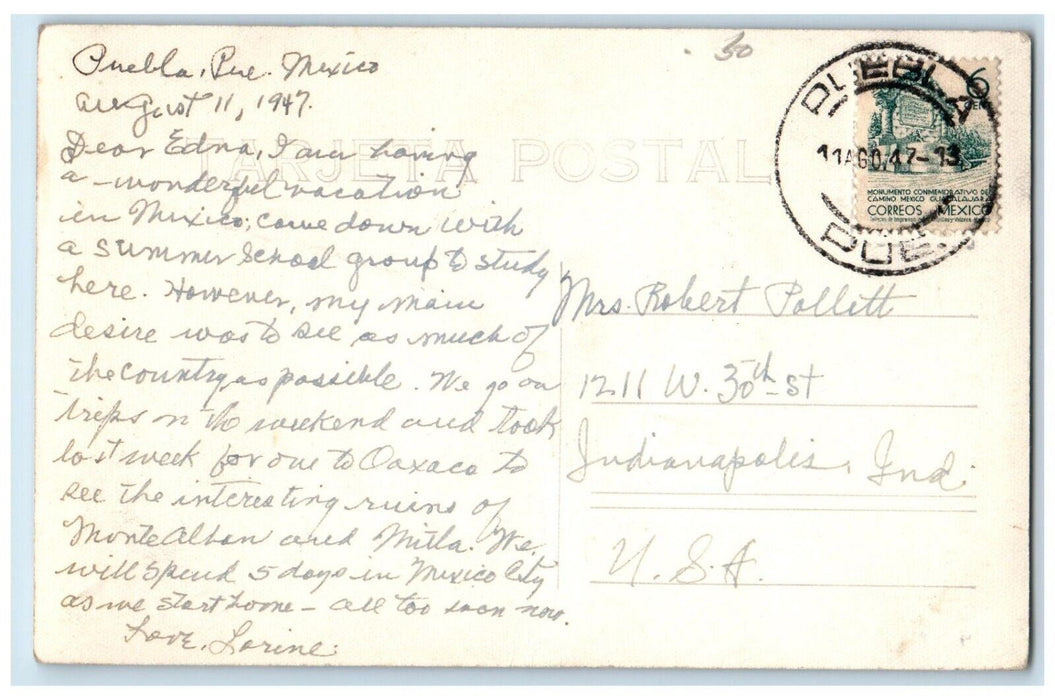 Puebla, Pue. Mexico
august 11, 1947.
30
TARJETA POSTAL
Dear Edna, I am having
a wonderful vacation
in Mexico; came down with
a summer school group to study
here. However, my main
desire was to see as much of
the country as possible. We go on
trips on the weekend and took
last week for one to Oaxaca to
see the interesting ruins of
Monte Alban and Mitla. We
will spend 5 days in Mexico City
as we start home – all too soon now.
Love, Lorine.
PUEBLA
11AGO.47-13
PUE.
6
MONUMENTO CONMEMORATIVO DEL
CAMINO MEXICO GUADALAJARA
CORREOS MEXICO
Mrs. Robert Pollett
1211 W. 30th St
Indianapolis, Ind.
U. S. A.